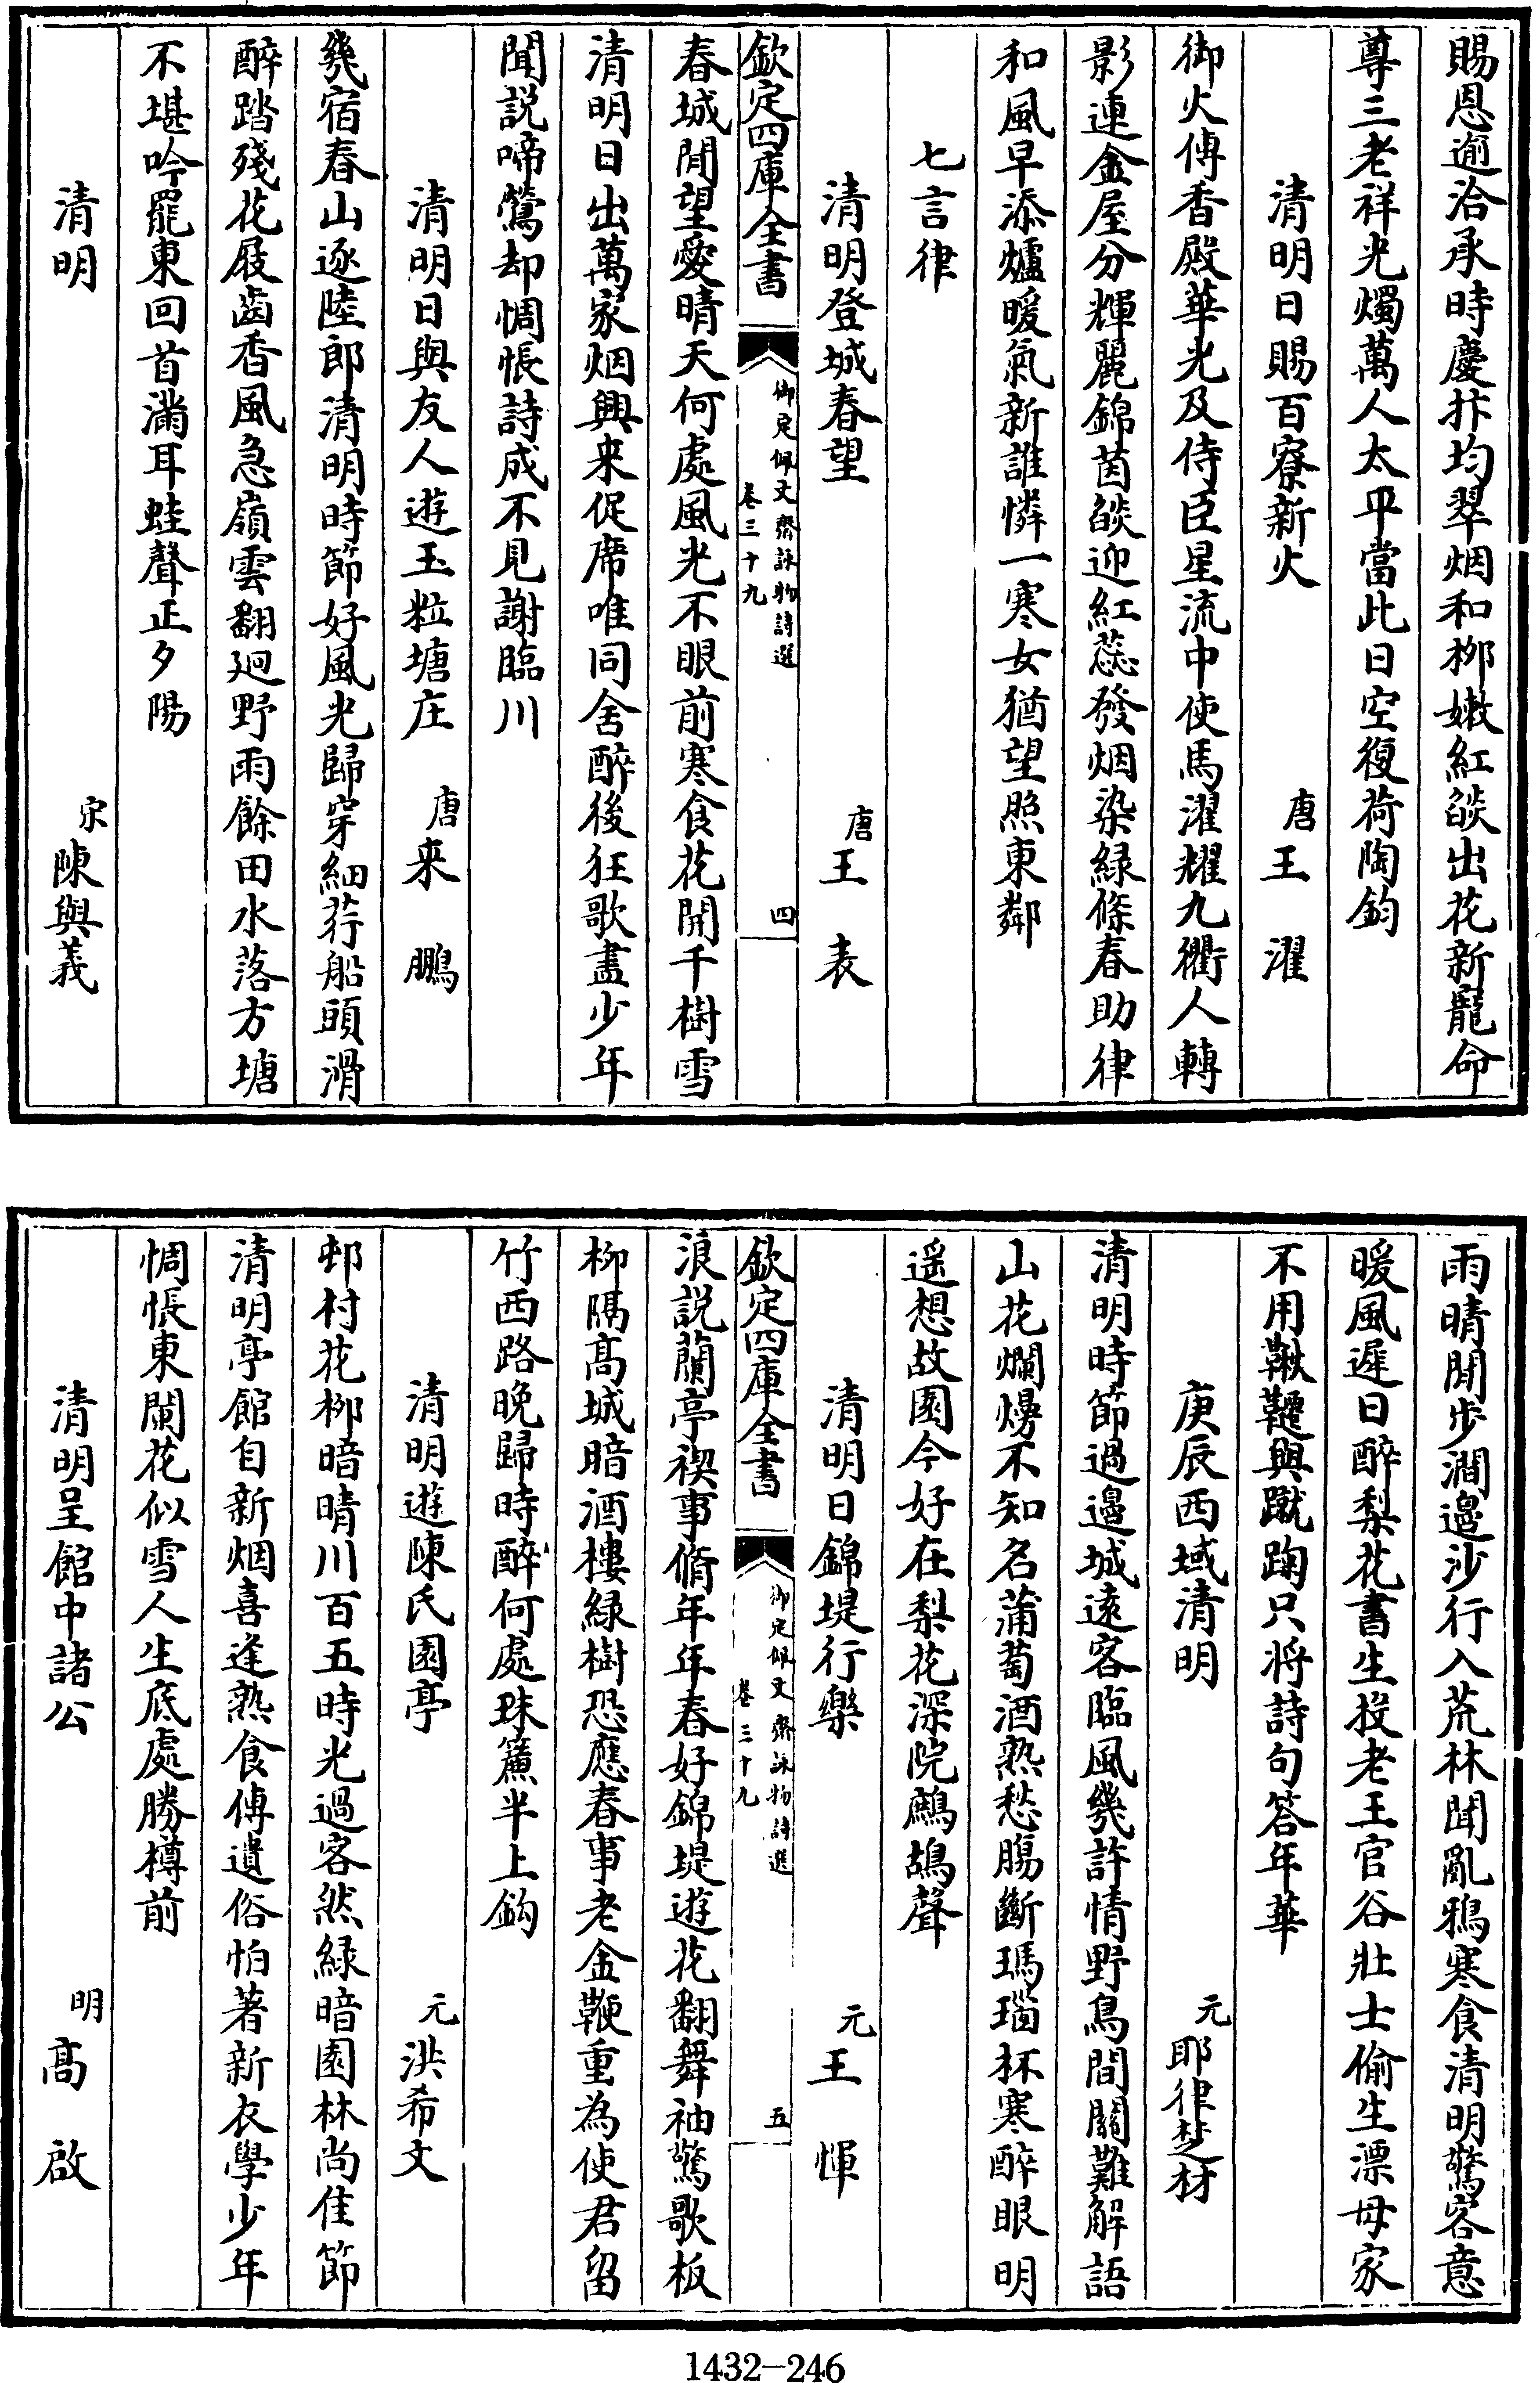 賜恩逾洽承時慶抃均翠烟和栁嫩紅燄出花新寵命
尊三老祥光燭萬人太平當此日空復荷陶鈞
清明日賜百寮新火 唐王濯
御火傳香殿華光及侍臣星流中使馬濯耀九衢人轉
影連金屋分輝麗錦茵燄迎紅蕊發烟染緑條春助律
和風早添爐暖氣新誰憐一寒女猶望照東鄰
七言律
清明登城春望 唐王表
欽定四庫全書 御定佩文齋詠物詩選 卷三十九 四
春城閒望愛晴天何處風光不眼前寒食花開千樹雪
清明日出萬家烟興来促席唯同舍醉後狂歌盡少年
聞説啼鶯却惆悵詩成不見謝臨川
清明日與友人遊玉粒塘庄 唐来鵬
幾宿春山逐陸郎清明時節好風光歸穿細荇船頭滑
醉踏殘花屐齒香風急嶺雲翻迥野雨餘田水落方塘
不堪吟罷東回首滿耳蛙聲正夕陽
清明 宋陳與義
雨晴閒步澗邊沙行入荒林聞亂鴉寒食清明驚客意
暖風遲日醉梨花書生投老王官谷壯士偷生漂母家
不用鞦韆與蹴踘只將詩句答年華
庚辰西域清明 元耶律楚材
清明時節過邊城逺客臨風幾許情野鳥間關難解語
山花爛熳不知名蒲萄酒熟愁腸斷瑪瑙杯寒醉眼明
遥想故園今好在梨花深院鷓鴣聲
清明日錦堤行樂 元王惲
欽定四庫全書 御定佩文齋詠物詩選 卷三十九 五
浪説蘭亭禊事脩年年春好錦堤遊花翻舞袖驚歌板
栁隔髙城暗酒樓緑樹恐應春事老金鞭重為使君留
竹西路晚歸時醉何處珠簾半上鈎
清明遊陳氏園亭 元洪希文
邨村花栁暗晴川百五時光過客然緑暗園林尚佳節
清明亭館自新烟喜逢熟食傳遺俗怕著新衣學少年
惆悵東闌花似雪人生底處勝樽前
清明呈館中諸公 明髙啟
1432-246